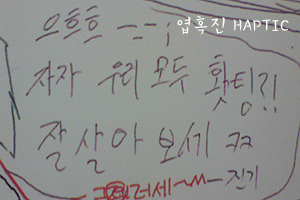 엽흑진 HAPTIC
으흐흐 -_-;
자자 우리 모두 홧팅!!
잘 살아 보세 ㅋㅋ
그럼 이러세~
진기